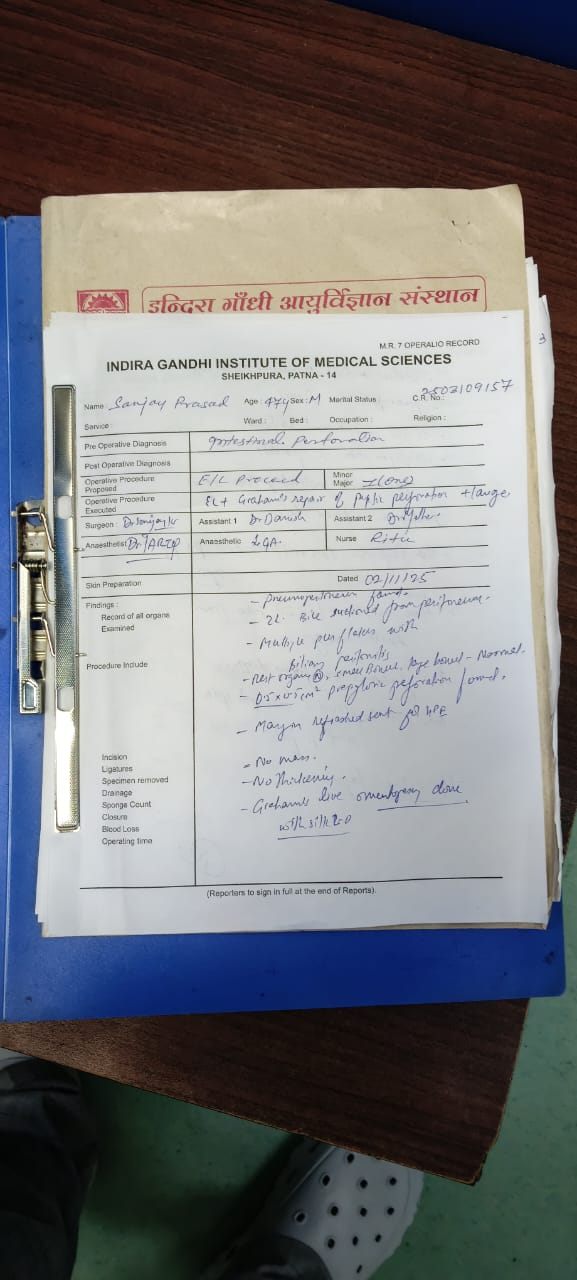 इन्दिरा गाँधी आयुर्विज्ञान संस्थान
3
M.R. 7 OPERALIO RECORD
INDIRA GANDHI INSTITUTE OF MEDICAL SCIENCES
SHEIKHPURA, PATNA - 14
Name : Sanjay Prasad Age : 47y Sex : M Merital Status : C.R. No.: 2503109157
Service : Ward : Bed : Occupation : Religion :
Pre Operative Diagnosis Intestinal Perforation
Post Operative Diagnosis
Operative Procedure Proposed E/L Proceed Minor Major I (One)
Operative Procedure Executed EL + Graham's repair of peptic perforation + lavage
Surgeon : Dr Sanjay Kr Assistant 1 Dr Danish Assistant 2
Anaesthetist Anaesthetic GA. Nurse Ritu
Skin Preparation Dated 02/11/25
Findings : - Pneumoperitoneum found.
Record of all organs Examined - 2L Bile suctioned from peritoneum.
- Multiple pus flakes with
Biliary peritonitis
Procedure Include - Rest organs (N), small bowel, large bowel - Normal.
- 0.5 x 0.5 cm² prepyloric perforation found.
- Margin refreshed sent for HPE
Incision - No mass.
Ligatures
Specimen removed - No thickening.
Drainage
Sponge Count - Graham's live omentopexy done
Closure
Blood Loss with silk 2-0
Operating time
(Reporters to sign in full at the end of Reports).